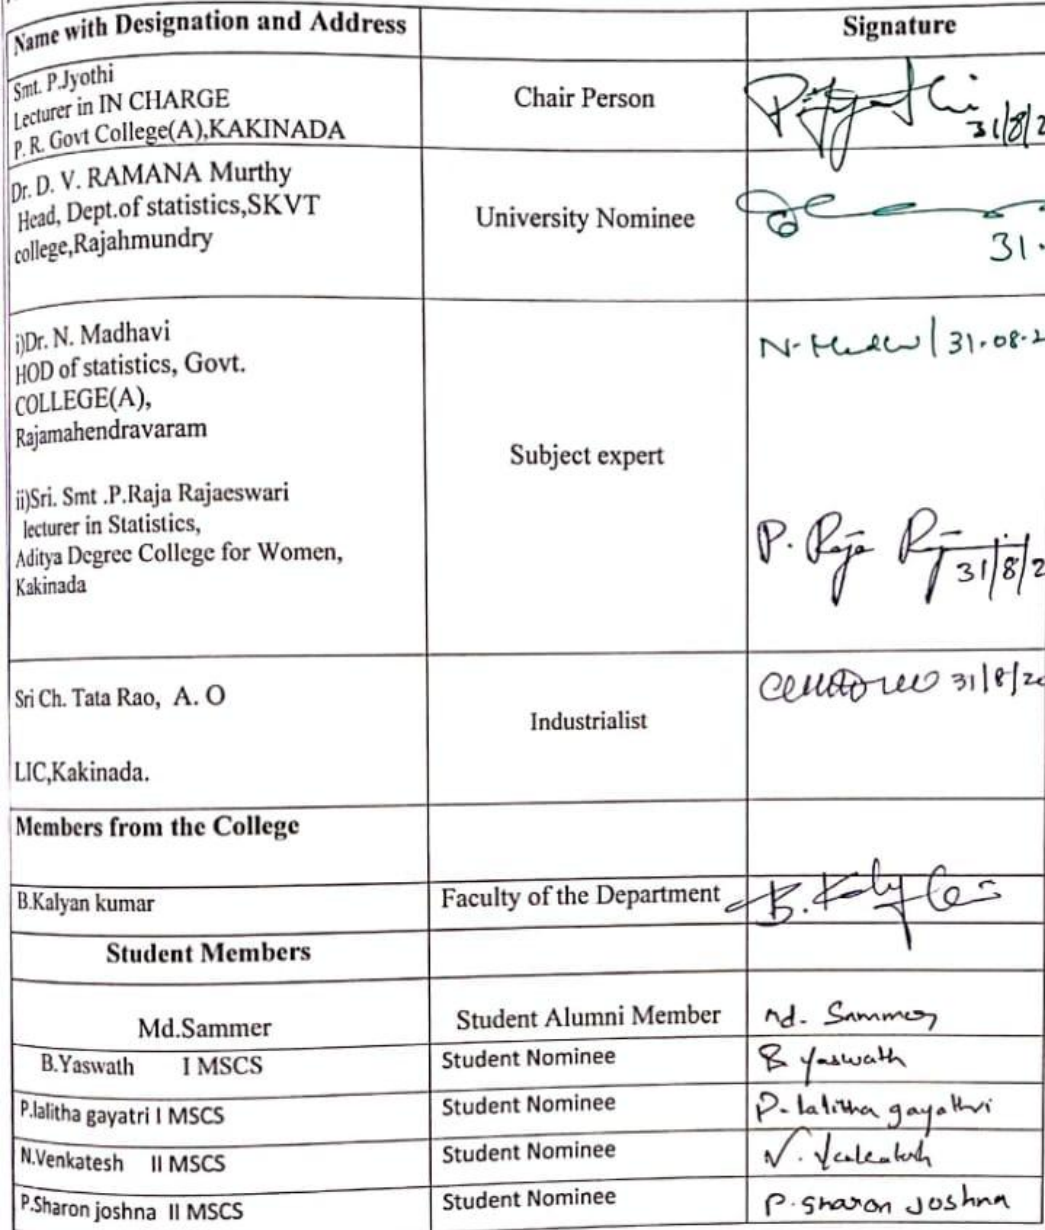 Name with Designation and Address
Signature
Smt. P.Jyothi
Lecturer in IN CHARGE
P. R. Govt College(A),KAKINADA
Chair Person
31/8/2
Dr. D. V. RAMANA Murthy
Head, Dept.of statistics,SKVT
college,Rajahmundry
University Nominee
31.
i)Dr. N. Madhavi
HOD of statistics, Govt.
COLLEGE(A),
Rajamahendravaram
ii)Sri. Smt .P.Raja Rajaeswari
lecturer in Statistics,
Aditya Degree College for Women,
Kakinada
Subject expert
31.08.2
P. Raja
31/8/2
Sri Ch. Tata Rao, A. O
LIC,Kakinada.
Industrialist
31/8/20
Members from the College
B.Kalyan kumar
Faculty of the Department
Student Members
Md.Sammer
Student Alumni Member
Md. Sammer
B.Yaswath I MSCS
Student Nominee
B yaswath
P.lalitha gayatri I MSCS
Student Nominee
P. lalitha gayathri
N.Venkatesh II MSCS
Student Nominee
N. Venkatesh
P.Sharon joshna II MSCS
Student Nominee
P. Sharon Joshna